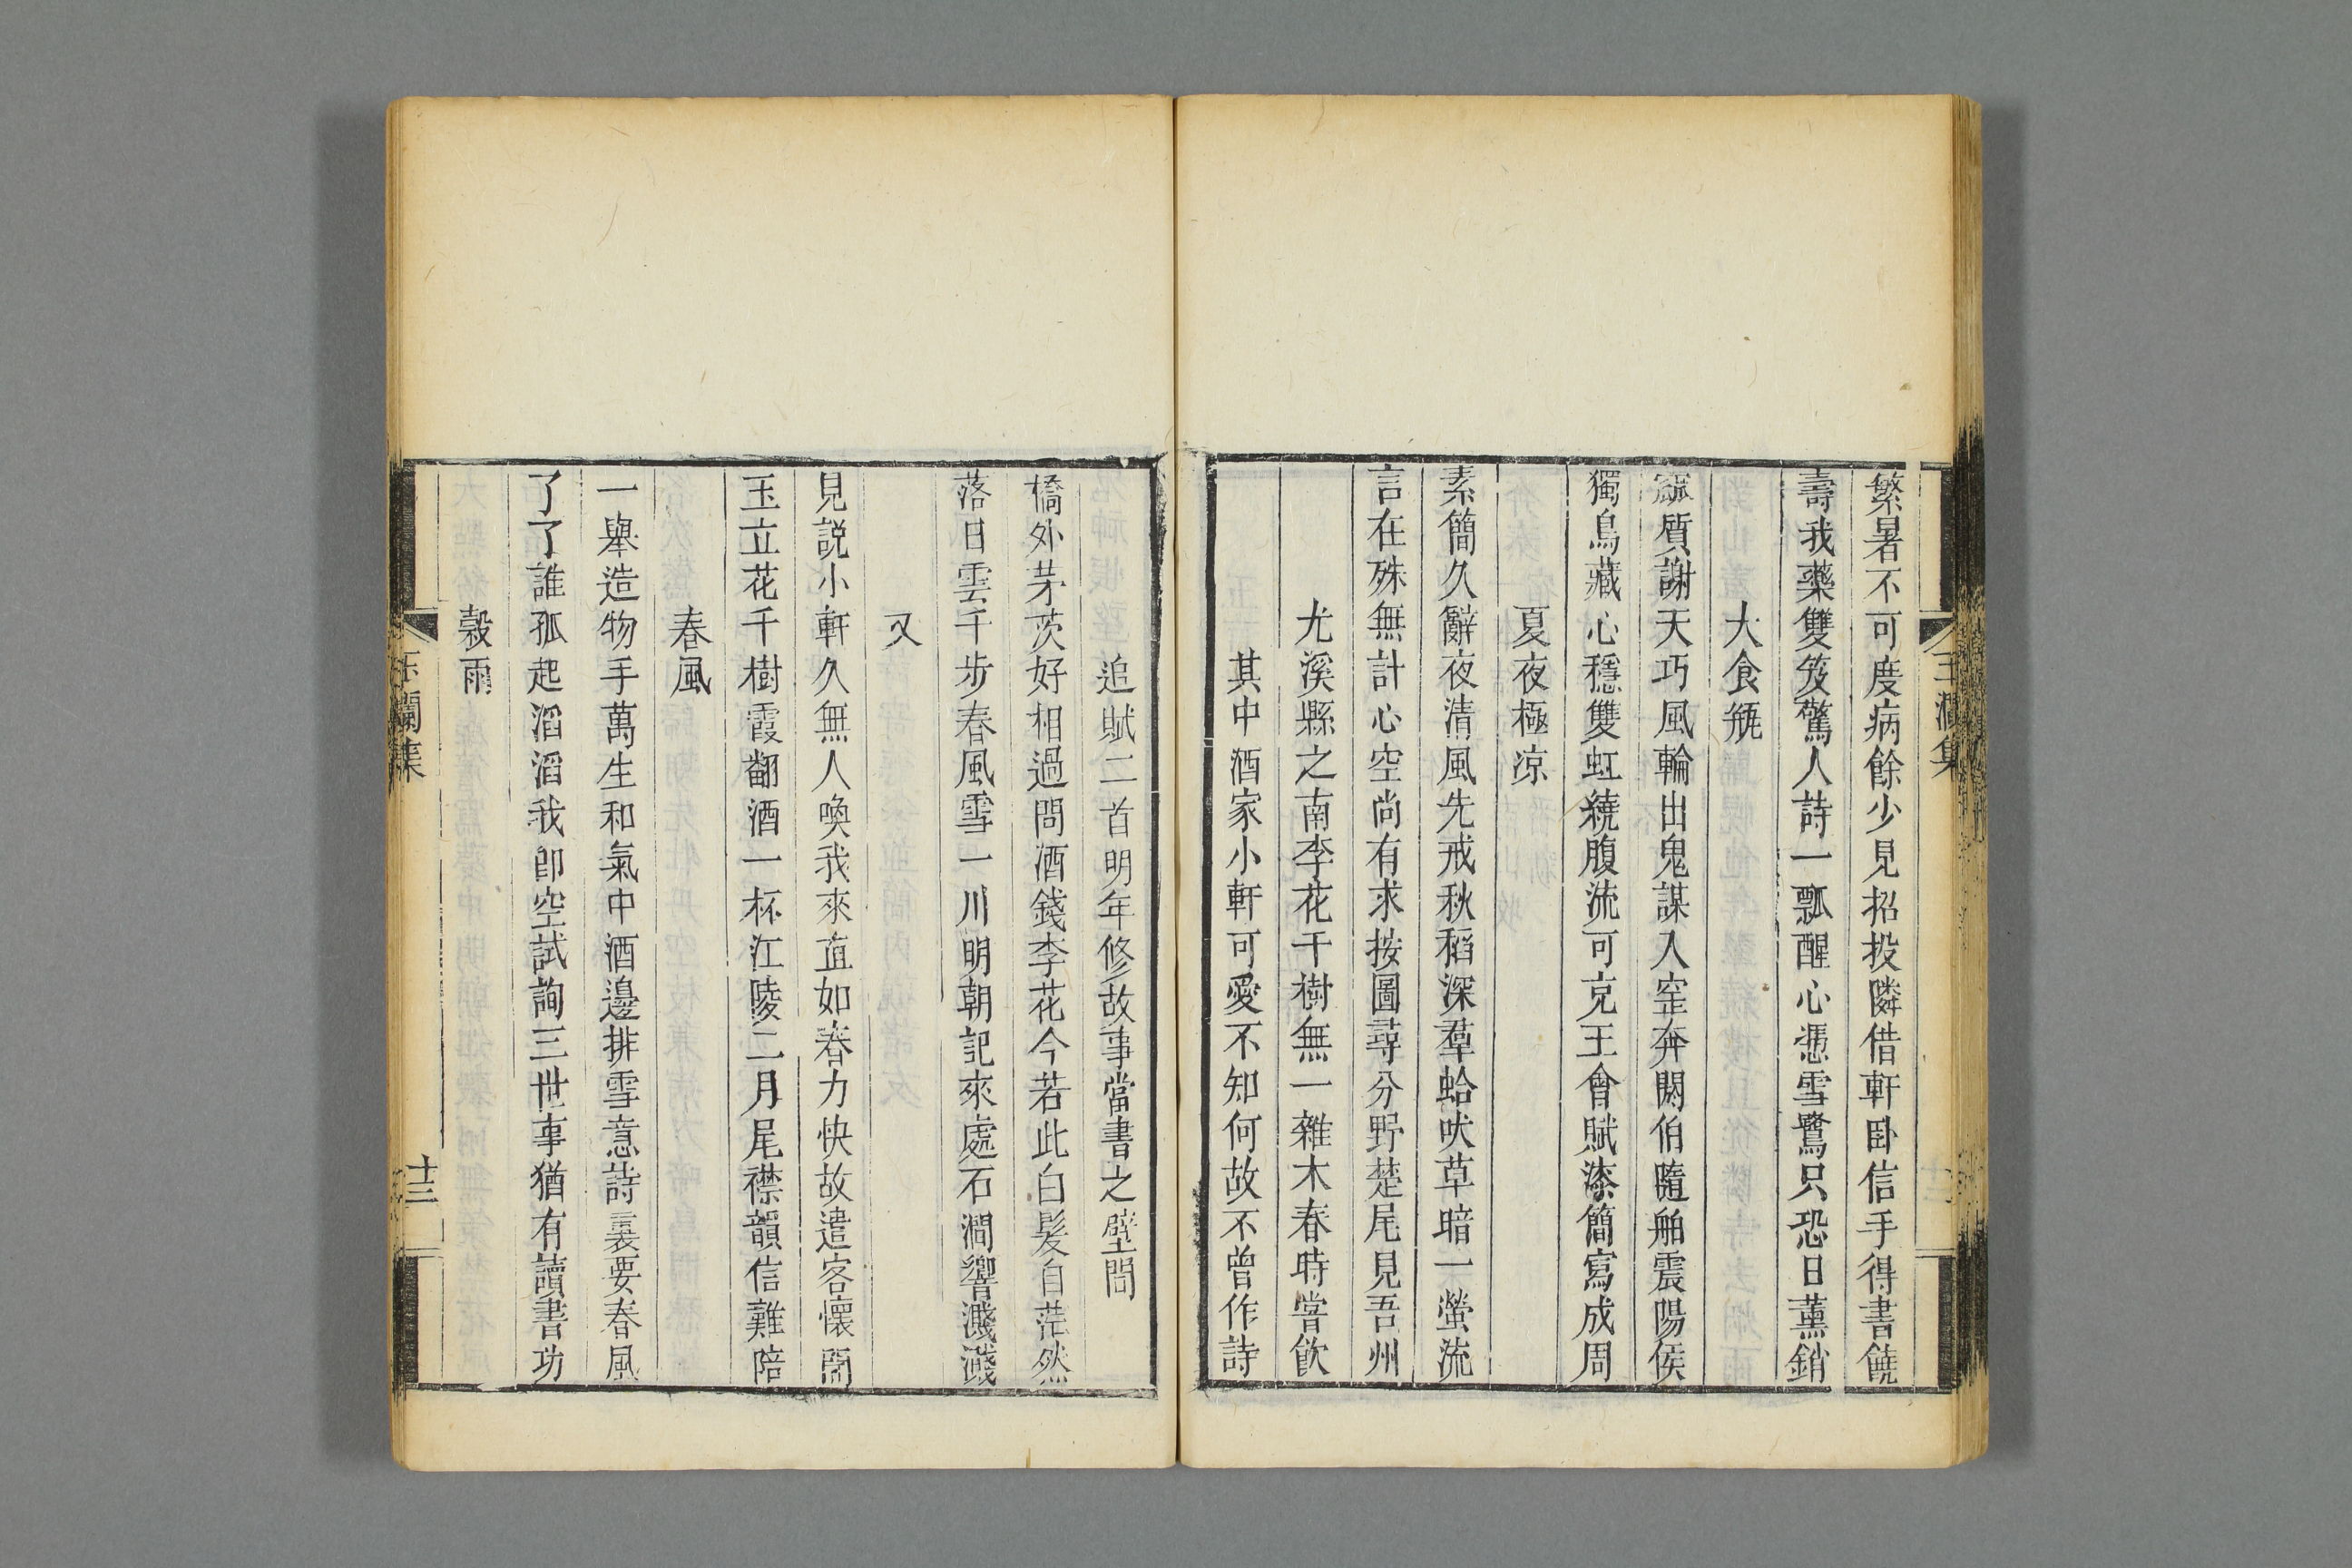 繁暑不可度病餘少見招投隣借軒卧信手得書饒
壽我藥雙笈驚人詩一瓢醒心憑雪鷺只恐日薰銷
大食瓶
窳質謝天巧風輪出鬼謀入窐奔閼伯隨舶震陽侯
獨鳥藏心穩雙虹繞腹流可充王會賦漆簡寫成周
夏夜極凉
素簡久辭夜清風先戒秋稻深羣蛤吠草暗一螢流
言在殊無計心空尚有求按圖尋分野楚尾見吾州
尤溪縣之南李花千樹無一雜木春時嘗飲
其中酒家小軒可愛不知何故不曾作詩
追賦二首明年修故事當書之壁間
橋外茅茨好相過問酒錢李花今若此白髮自茫然
落日雲千步春風雪一川明朝記來處石澗響濺濺
又
見説小軒久無人喚我來直如春力快故遣客懷開
玉立花千樹霞翻酒一杯江陵二月尾襟韻信難陪
春風
一舉造物手萬生和氣中酒邊排雪意詩裏要春風
了了誰孤起滔滔我卽空試詢三世事猶有讀書功
糓雨
玉瀾集
十三